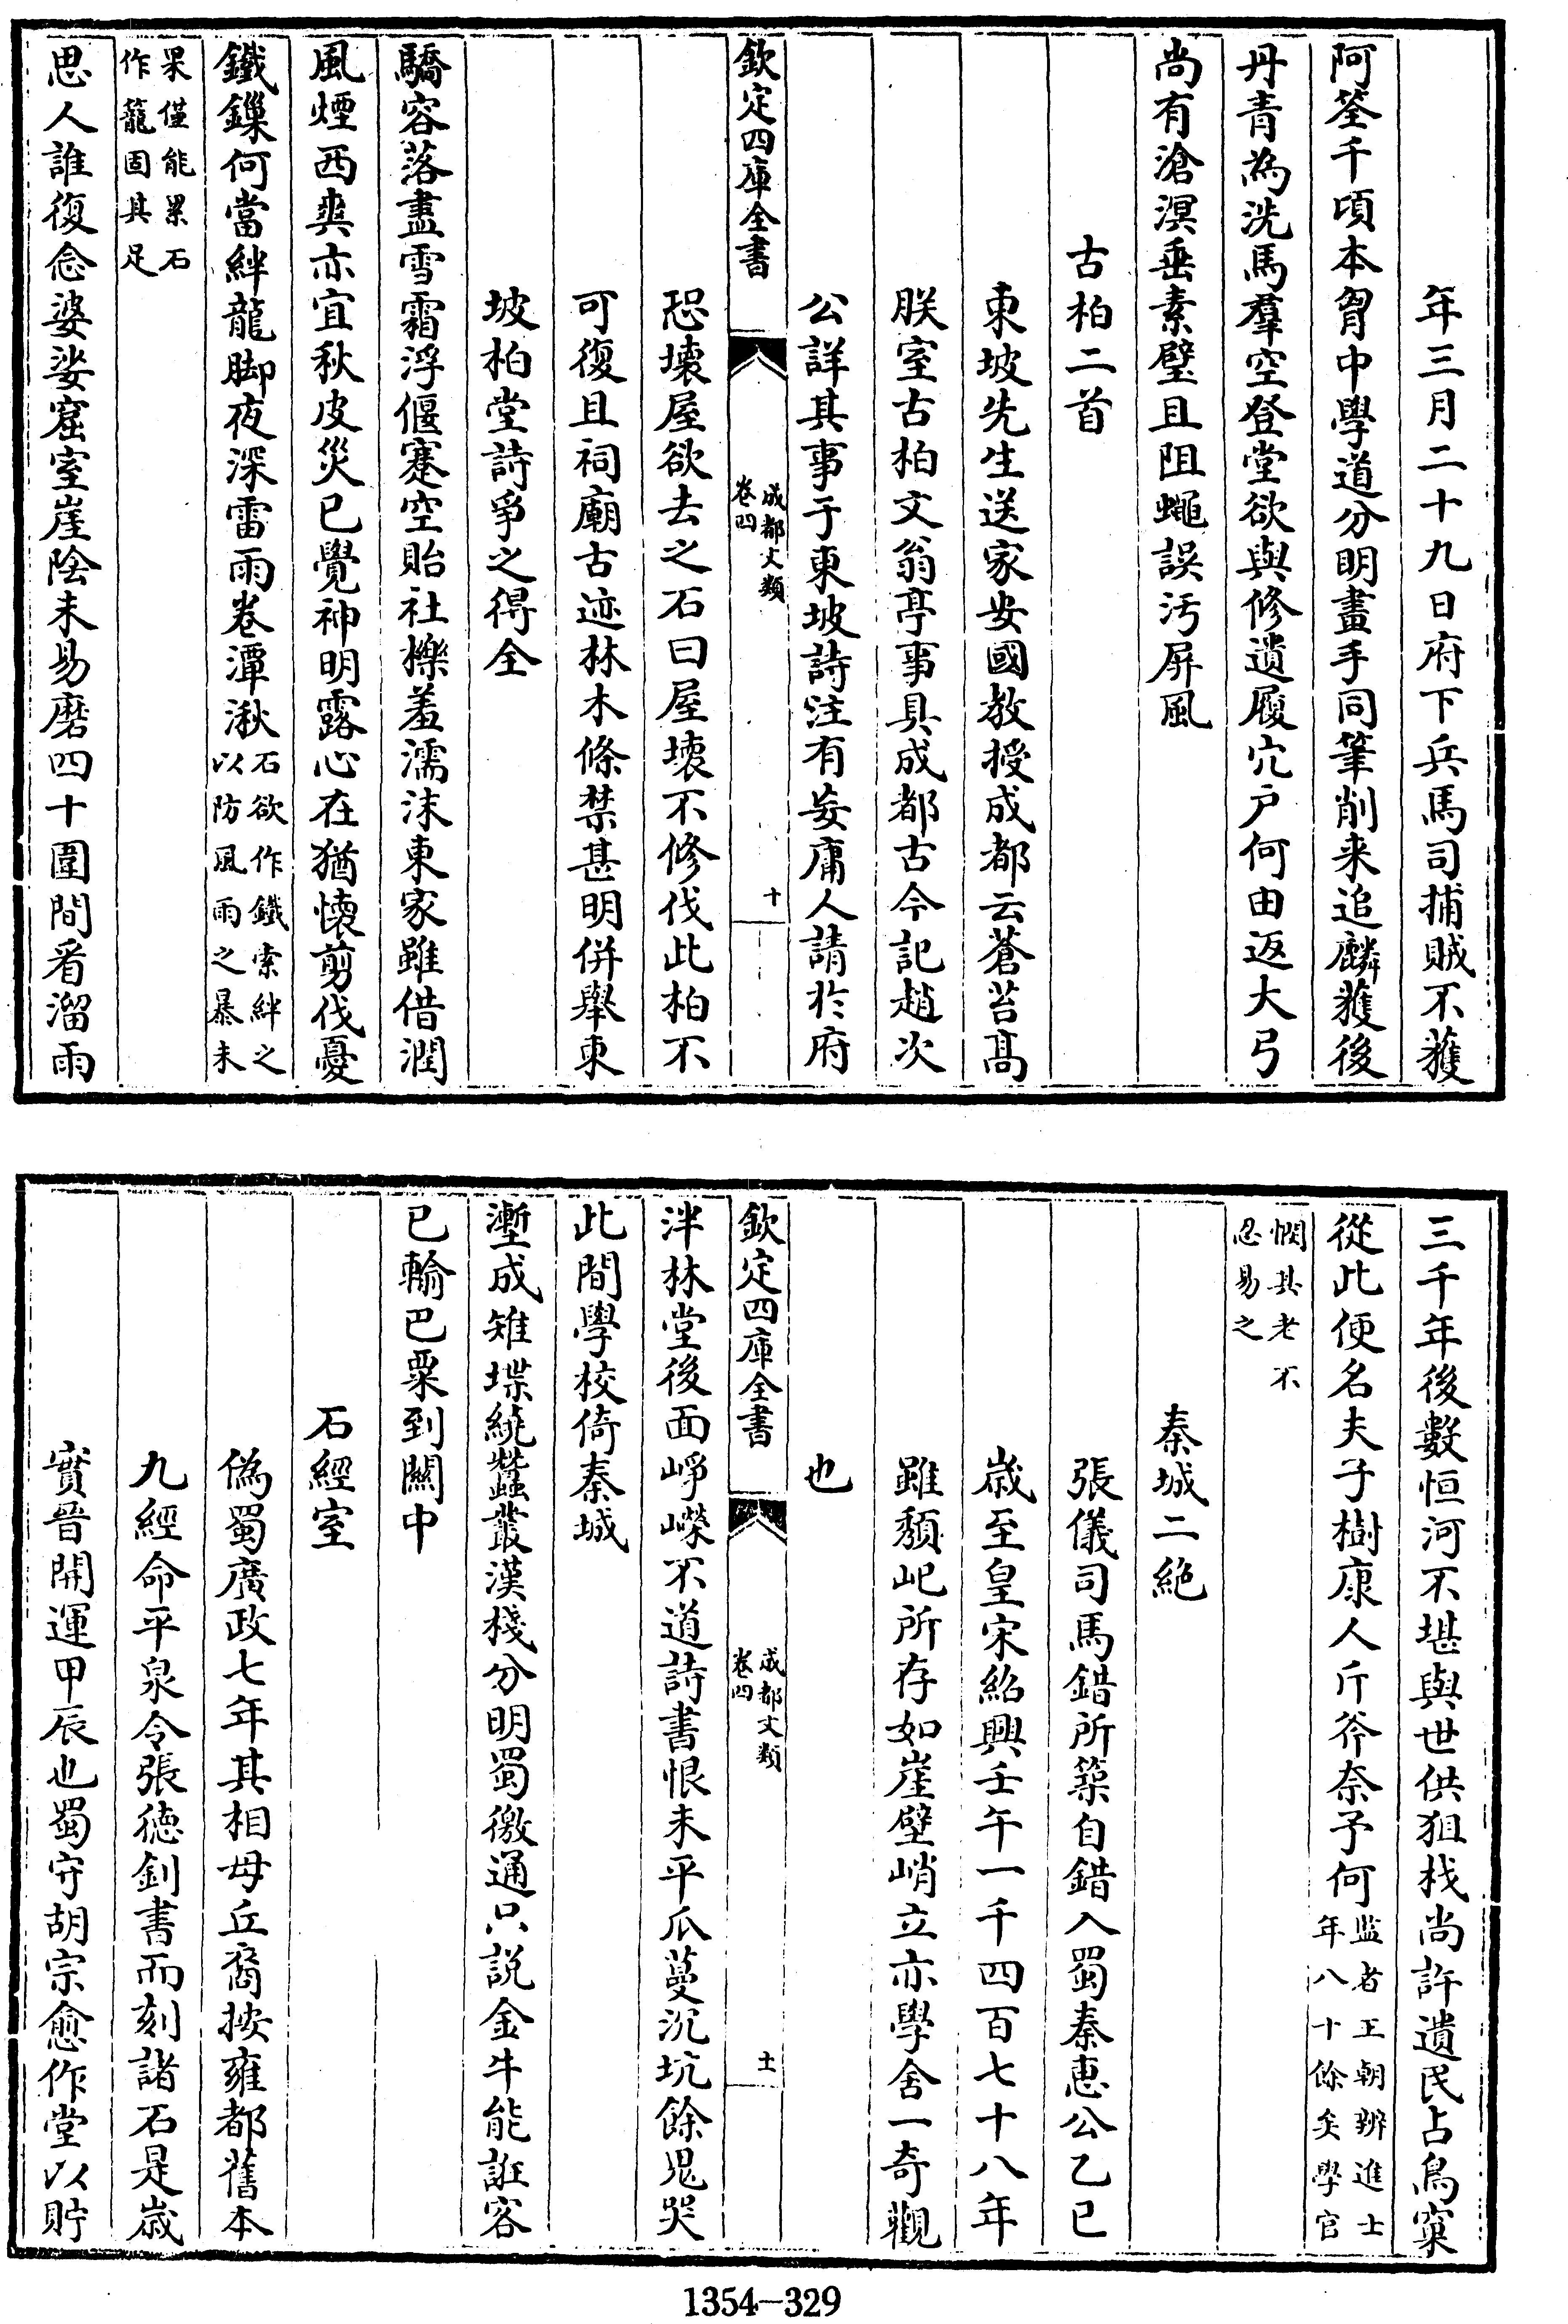 年三月二十九日府下兵馬司捕賊不獲
阿荃千頃本胷中學道分明畫手同筆削来追麟獲後
丹青為洗馬羣空登堂欲與修遺履穴户何由返大弓
尚有滄溟垂素壁且阻蠅誤汚屏風
古柏二首
東坡先生送家安國教授成都云蒼苔髙
朕室古柏文翁亭事具成都古今記趙次
公詳其事于東坡詩注有妄庸人請於府
欽定四庫全書
成都文類
卷四
十
恐壊屋欲去之石曰屋壊不修伐此柏不
可復且祠廟古迹林木條禁甚明併舉東
坡柏堂詩爭之得全
驕容落盡雪霜浮偃蹇空貽社櫟羞濡沫東家雖借潤
風煙西爽亦宜秋皮災已覺神明露心在猶懐剪伐憂
鐵鏁何當絆龍脚夜深雷雨卷潭湫石欲作鐵索絆之
以防風雨之暴未
果僅能累石
作籠固其足
思人誰復念婆娑窟室崖陰未易磨四十圍間看溜雨
三千年後數恒河不堪與世供狙杙尚許遺民占鳥窠
從此便名夫子樹康人斤斧奈予何监者王朝辨進士
年八十餘矣學官
憫其老不
忍易之
秦城二絶
張儀司馬錯所築自錯入蜀秦惠公乙巳
歳至皇宋紹興壬午一千四百七十八年
雖頽圮所存如崖壁峭立亦學舍一奇觀
也
欽定四庫全書
成都文類
卷四
土
泮林堂後面崢嶸不道詩書恨未平瓜蔓沉坑餘鬼哭
此間學校倚秦城
壍成雉堞繞蠶叢漢棧分明蜀徼通只説金牛能誑客
已輸巴粟到關中
石經室
偽蜀廣政七年其相母丘裔按雍都舊本
九經命平泉令張徳釗書而刻諸石是歳
實晉開運甲辰也蜀守胡宗愈作堂以貯
1354—329